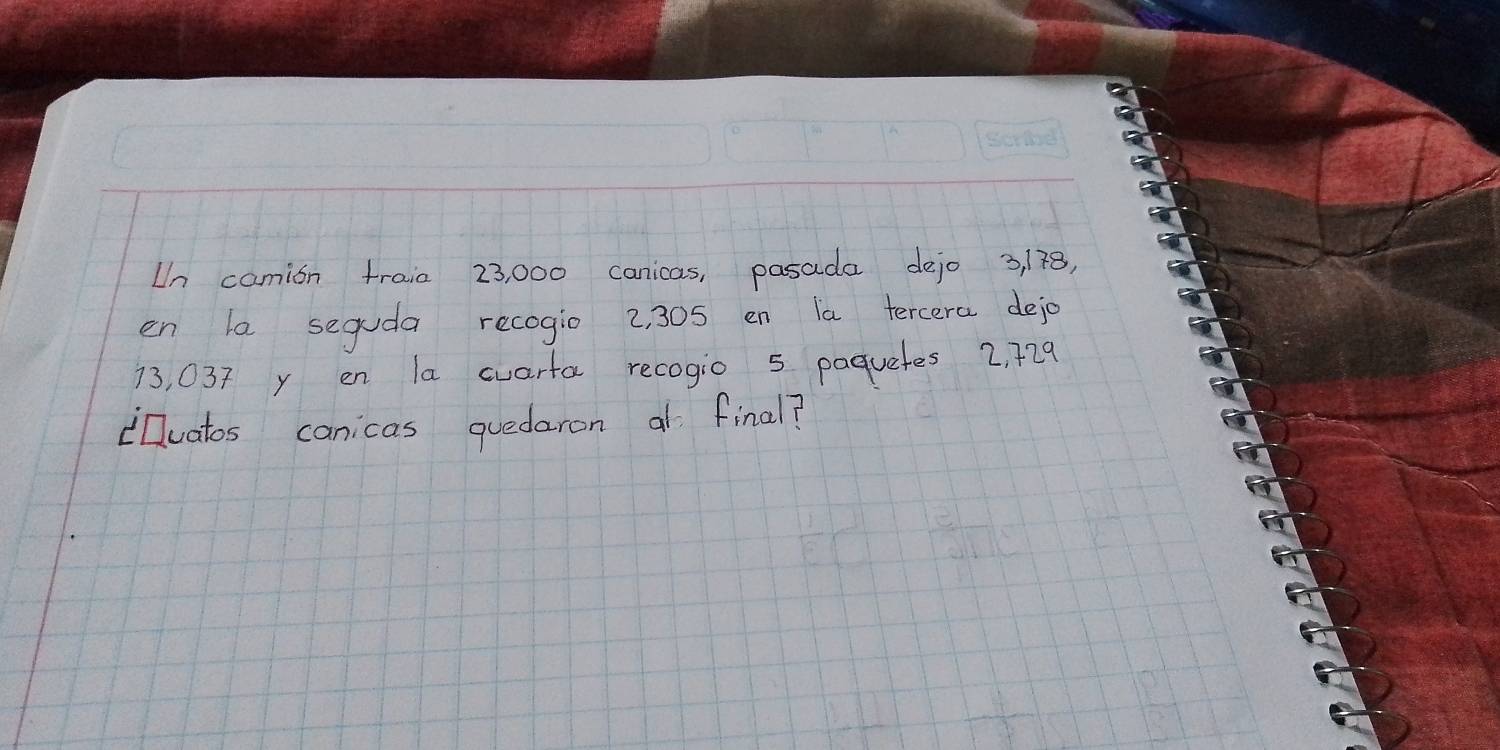 D M A Scribe
Un camión traia 23,000 canicas, pasada dejo 3,178,
en la seguda recogio 2,305 en la tercera dejo
13,037 y en la cuarta recogio 5 paquetes 2,729
¿Cuatos canicas quedaron al final?